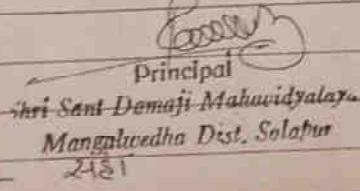 Principal
Shri Sant Damaji Mahavidyalaya
Mangalwedha Dist. Solapur